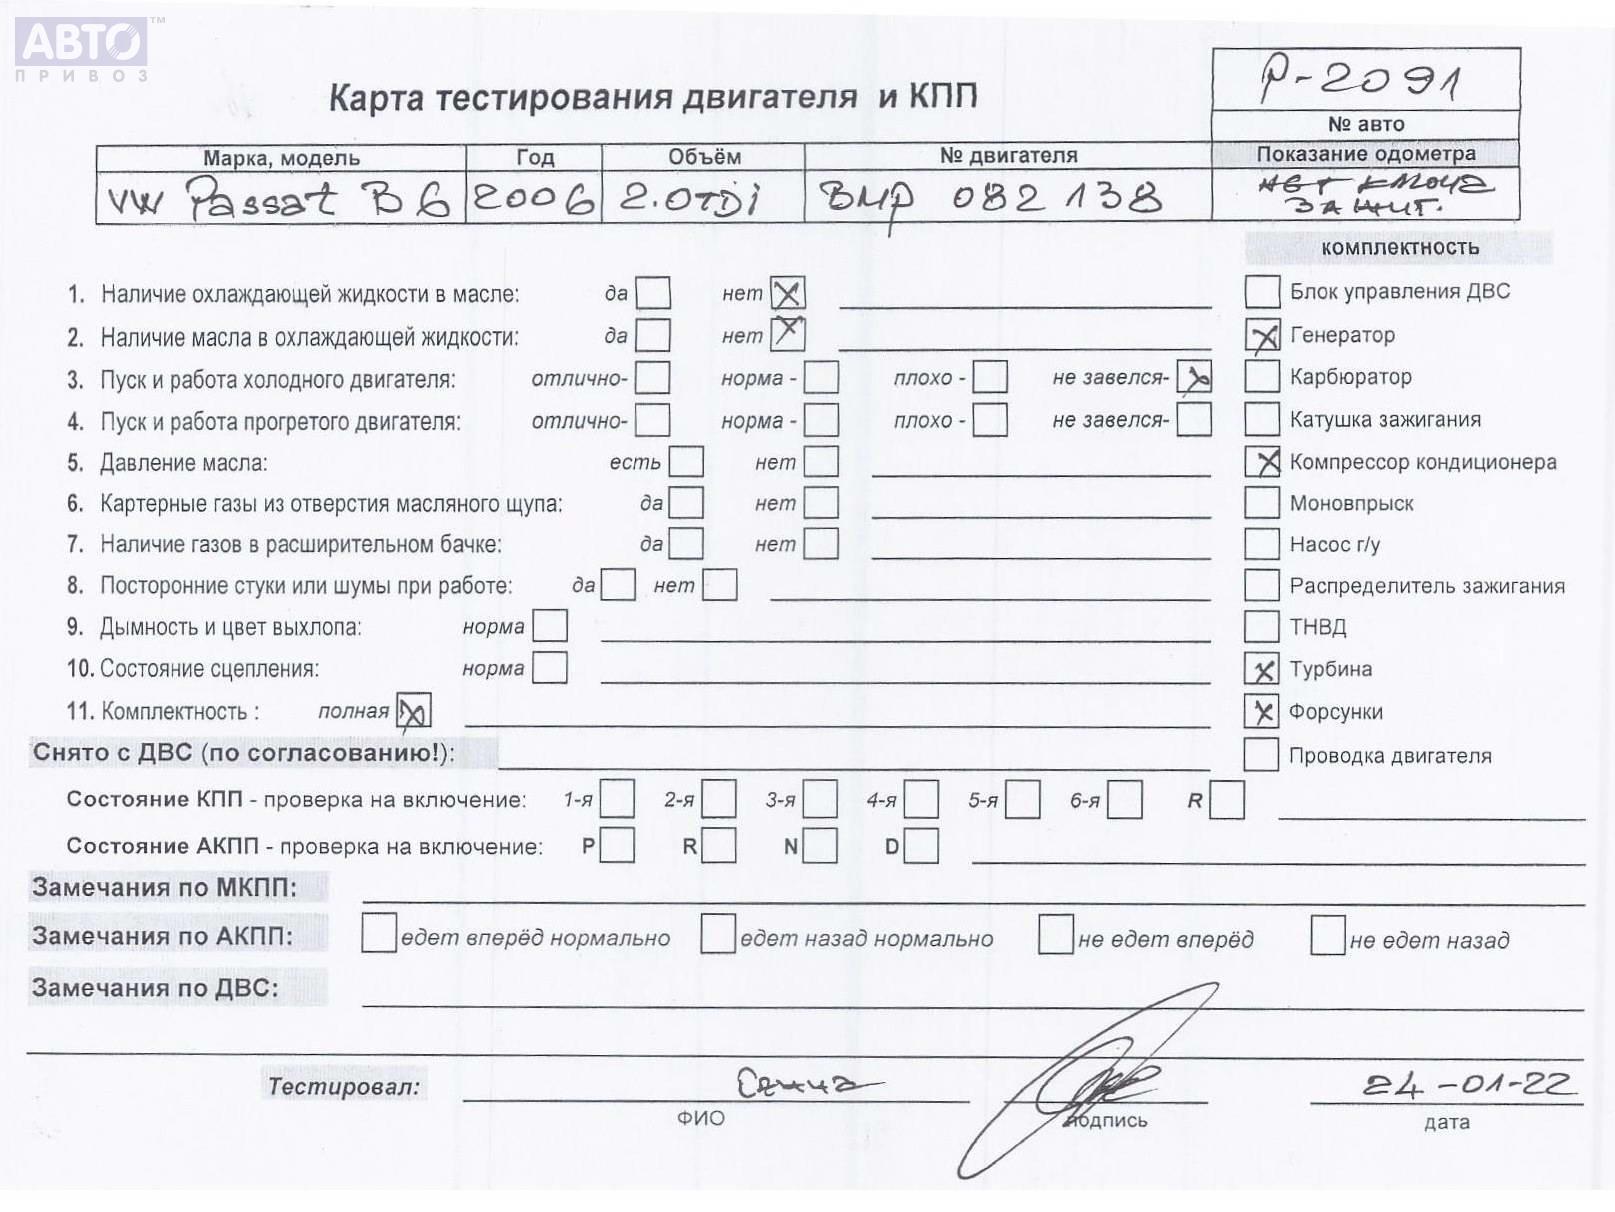 АВТО™
ПРИВОЗ
Карта тестирования двигателя и КПП
P-2091
№ авто
Марка, модель Год Объём № двигателя Показание одометра
VW Passat B6 2006 2.0TDi BMP 082 138 нет ключа
зажиг.
комплектность
1. Наличие охлаждающей жидкости в масле: да нет Блок управления ДВС
2. Наличие масла в охлаждающей жидкости: да нет Генератор
3. Пуск и работа холодного двигателя: отлично- норма - плохо - не завелся- Карбюратор
4. Пуск и работа прогретого двигателя: отлично- норма - плохо - не завелся- Катушка зажигания
5. Давление масла: есть нет Компрессор кондиционера
6. Картерные газы из отверстия масляного щупа: да нет Моновпрыск
7. Наличие газов в расширительном бачке: да нет Насос г/у
8. Посторонние стуки или шумы при работе: да нет Распределитель зажигания
9. Дымность и цвет выхлопа: норма ТНВД
10. Состояние сцепления: норма Турбина
11. Комплектность : полная Форсунки
Снято с ДВС (по согласованию!): Проводка двигателя
Состояние КПП - проверка на включение: 1-я 2-я 3-я 4-я 5-я 6-я R
Состояние АКПП - проверка на включение: P R N D
Замечания по МКПП:
Замечания по АКПП: едет вперёд нормально едет назад нормально не едет вперёд не едет назад
Замечания по ДВС:
Тестировал: 24-01-22
ФИО подпись дата